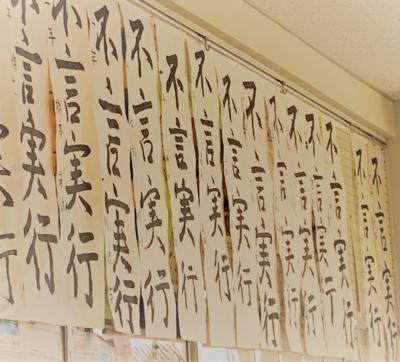 不言実行
不言実行
不言実行
不言実行
不言実行
不言実行
不言実行
不言実行
不言実行
不言実行
不言実行
不言実行
不言実行
不言実行